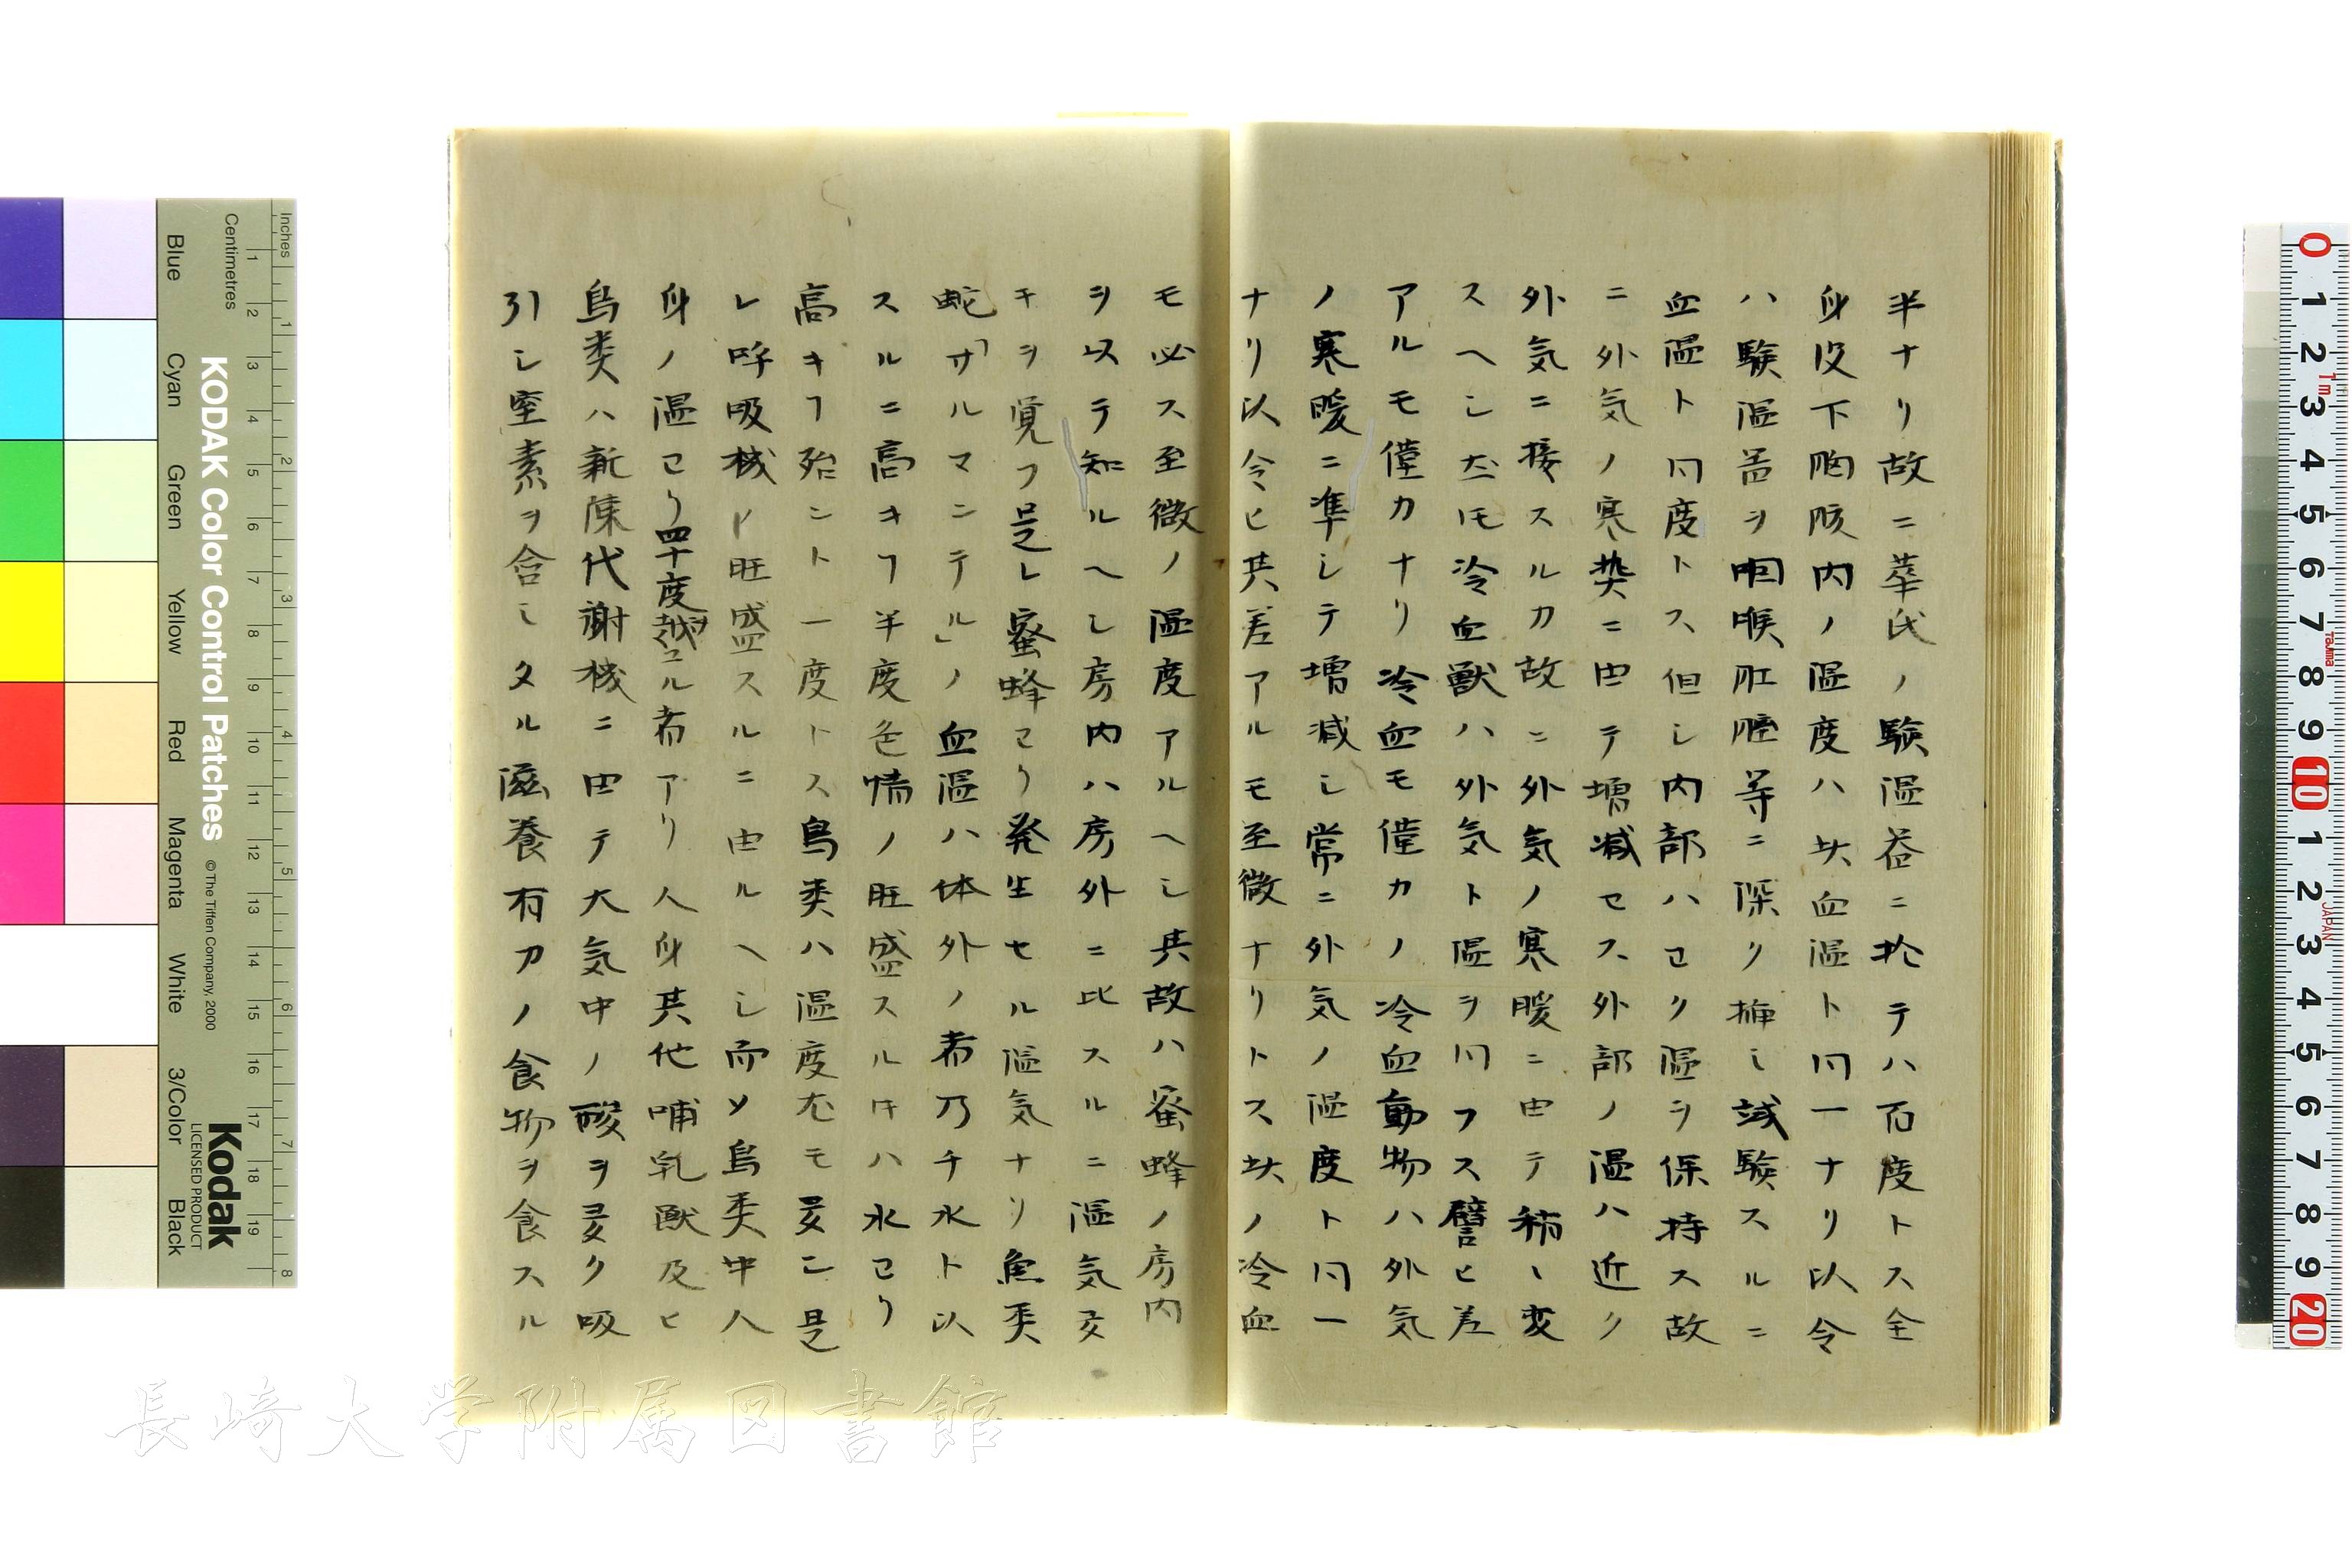 半ナリ故ニ華氏ノ験温器ニ於テハ百度トス全
身皮下胸腹内ノ温度ハ血温ト同一ナリ以令
ハ験温器ヲ咽喉肛腟等ニ深ク挿シ試験スルニ
血温ト同度トス但シ内部ハヨク温ヲ保持ス故
ニ外気ノ寒熱ニ由テ増減セス外部ノ温ハ近ク
外気ニ接スルカ故ニ外気ノ寒暖ニ由テ稍ヽ変
スヘシ𪜈冷血獣ハ外気ト温ヲ同フス譬ヒ差
アルモ僅カナリ冷血モ僅カノ冷血動物ハ外気
ノ寒暖ニ準シテ増減シ常ニ外気ノ温度ト同一
ナリ以令ヒ其差アルモ至微ナリトスノ冷血
モ必ス至微ノ温度アルヘシ其故ハ蜜蜂ノ房内
ヲ以テ知ルヘシ房内ハ房外ニ比スルニ温気多
キヲ覚フ是レ蜜蜂ヨリ発生セル温気ナリ魚類
蛇「サルマンテル」ノ血温ハ体外ノ者乃チ水ト以
スルニ高キヿ半度色情ノ旺盛スル𪜈ハ水ヨリ
高キヿ殆ント一度トス鳥類ハ温度尤モ多シ是
レ呼吸機ノ旺盛スルニ由ルヘシ而〆鳥類中人
身ノ温ヨリ四十度ヲ越ユル者アリ人身其他哺乳獣及ヒ
鳥類ハ新陳代謝機ニ由テ大気中ノ酸ヲ多ク吸
引シ窒素ヲ含シタル滋養有力ノ食物ヲ食スル
KODAK Color Control Patches
© The Tiffen Company, 2000
Kodak
LICENSED PRODUCT
Inches
Centimetres
Blue Cyan Green Yellow Red Magenta White 3/Color Black
長崎大学附属図書館